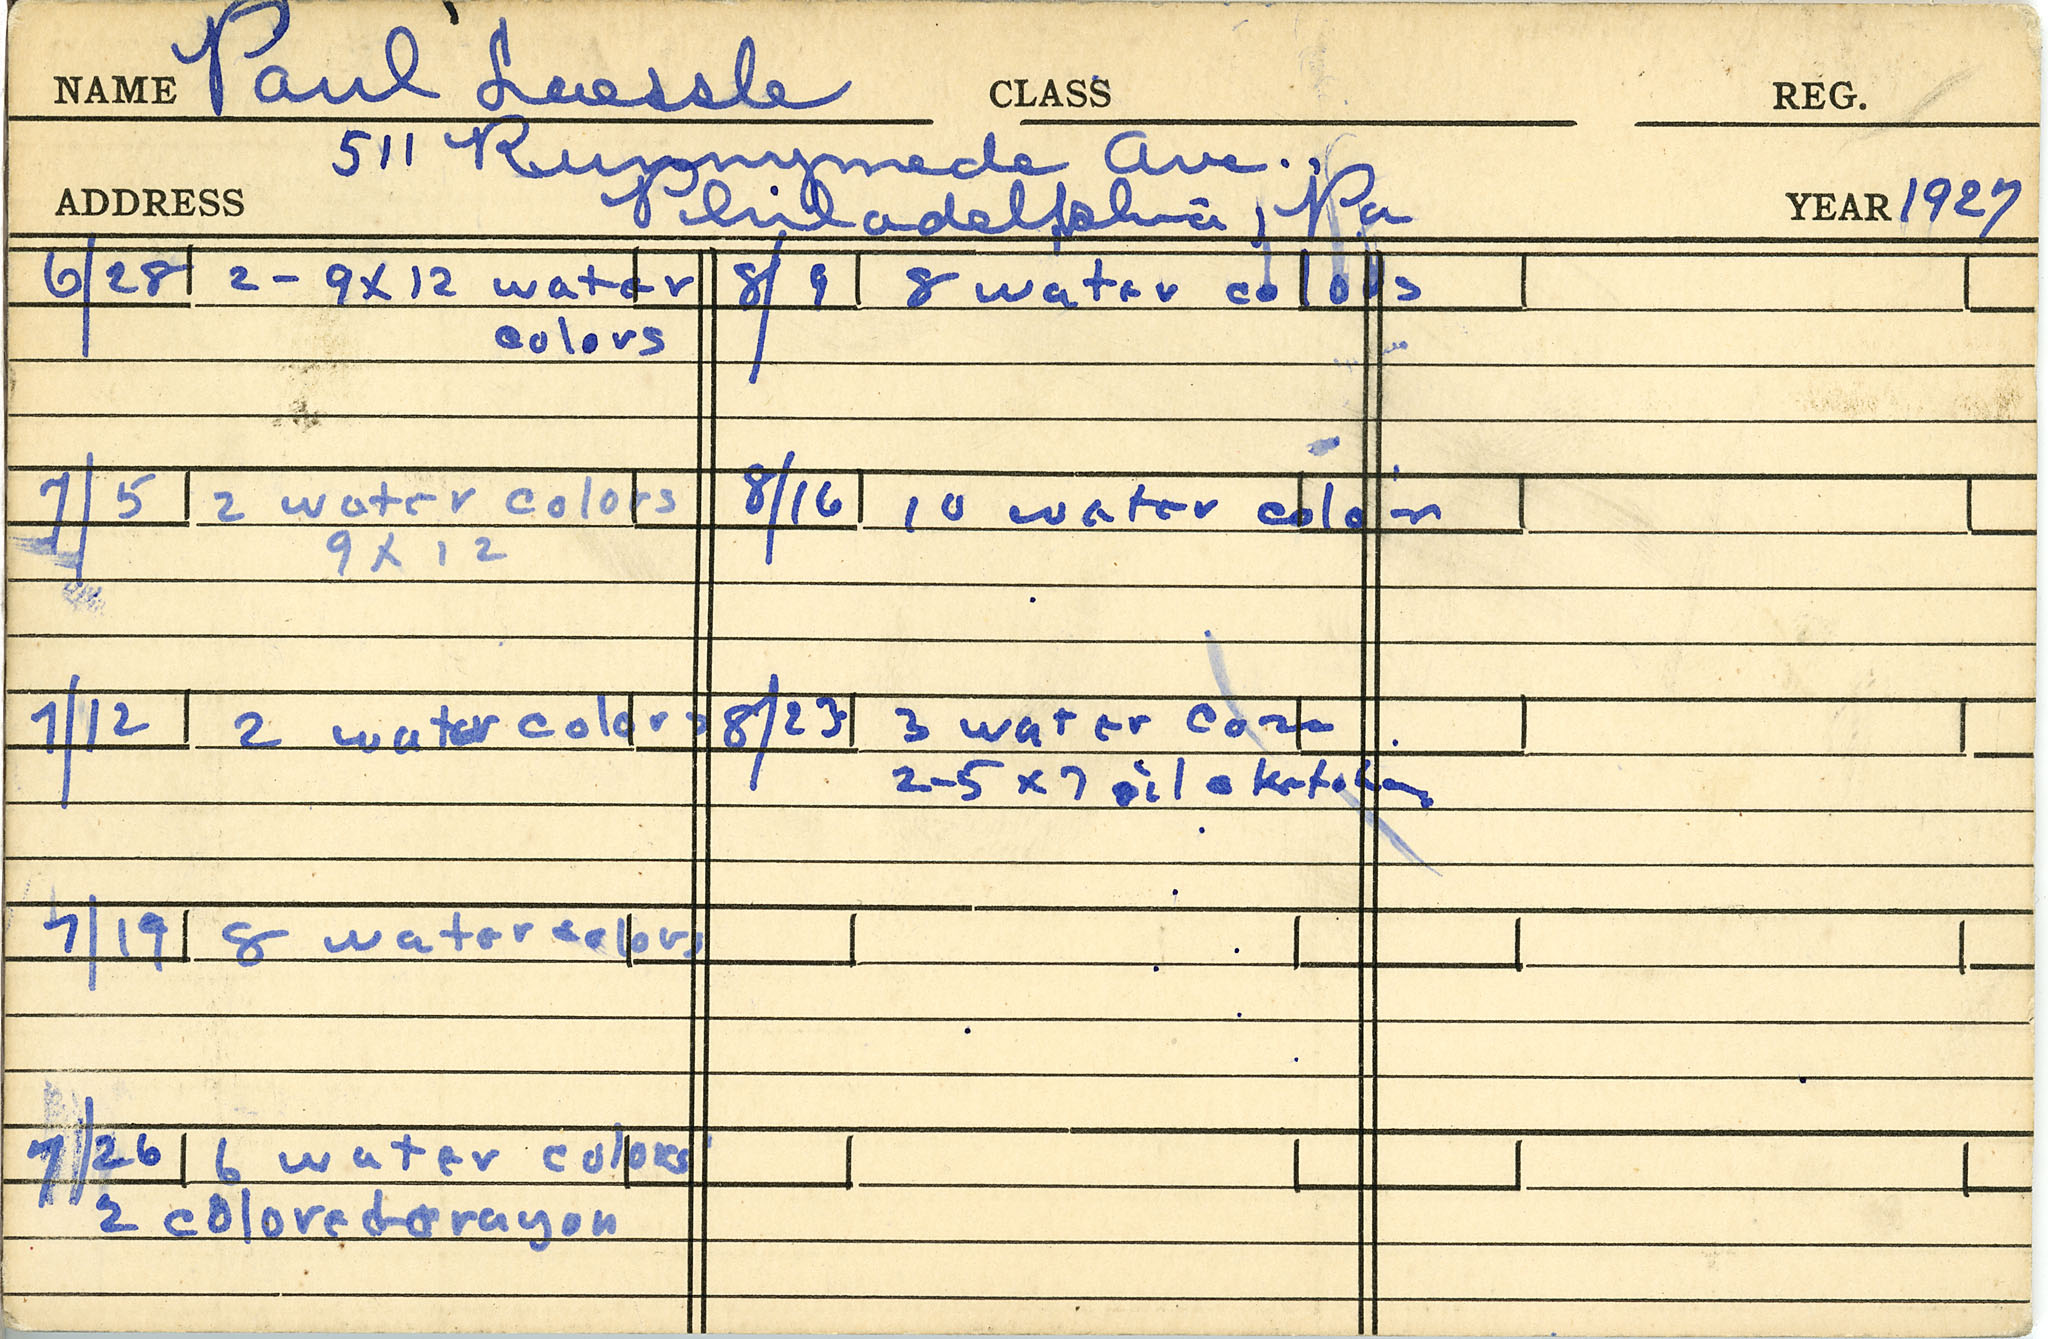 NAME Paul Luessle CLASS REG.
511 Runnymede Ave.,
ADDRESS Philadelphia, Pa YEAR 1927
6/28 2 - 9x12 water
colors
7/5 2 water colors
9 x 12
7/12 2 water colors
7/19 8 water colors
7/26 6 water colors
2 colored crayon
8/9 8 water colors
8/16 10 water colors
8/23 3 water
2-5 x 7 oil sketches